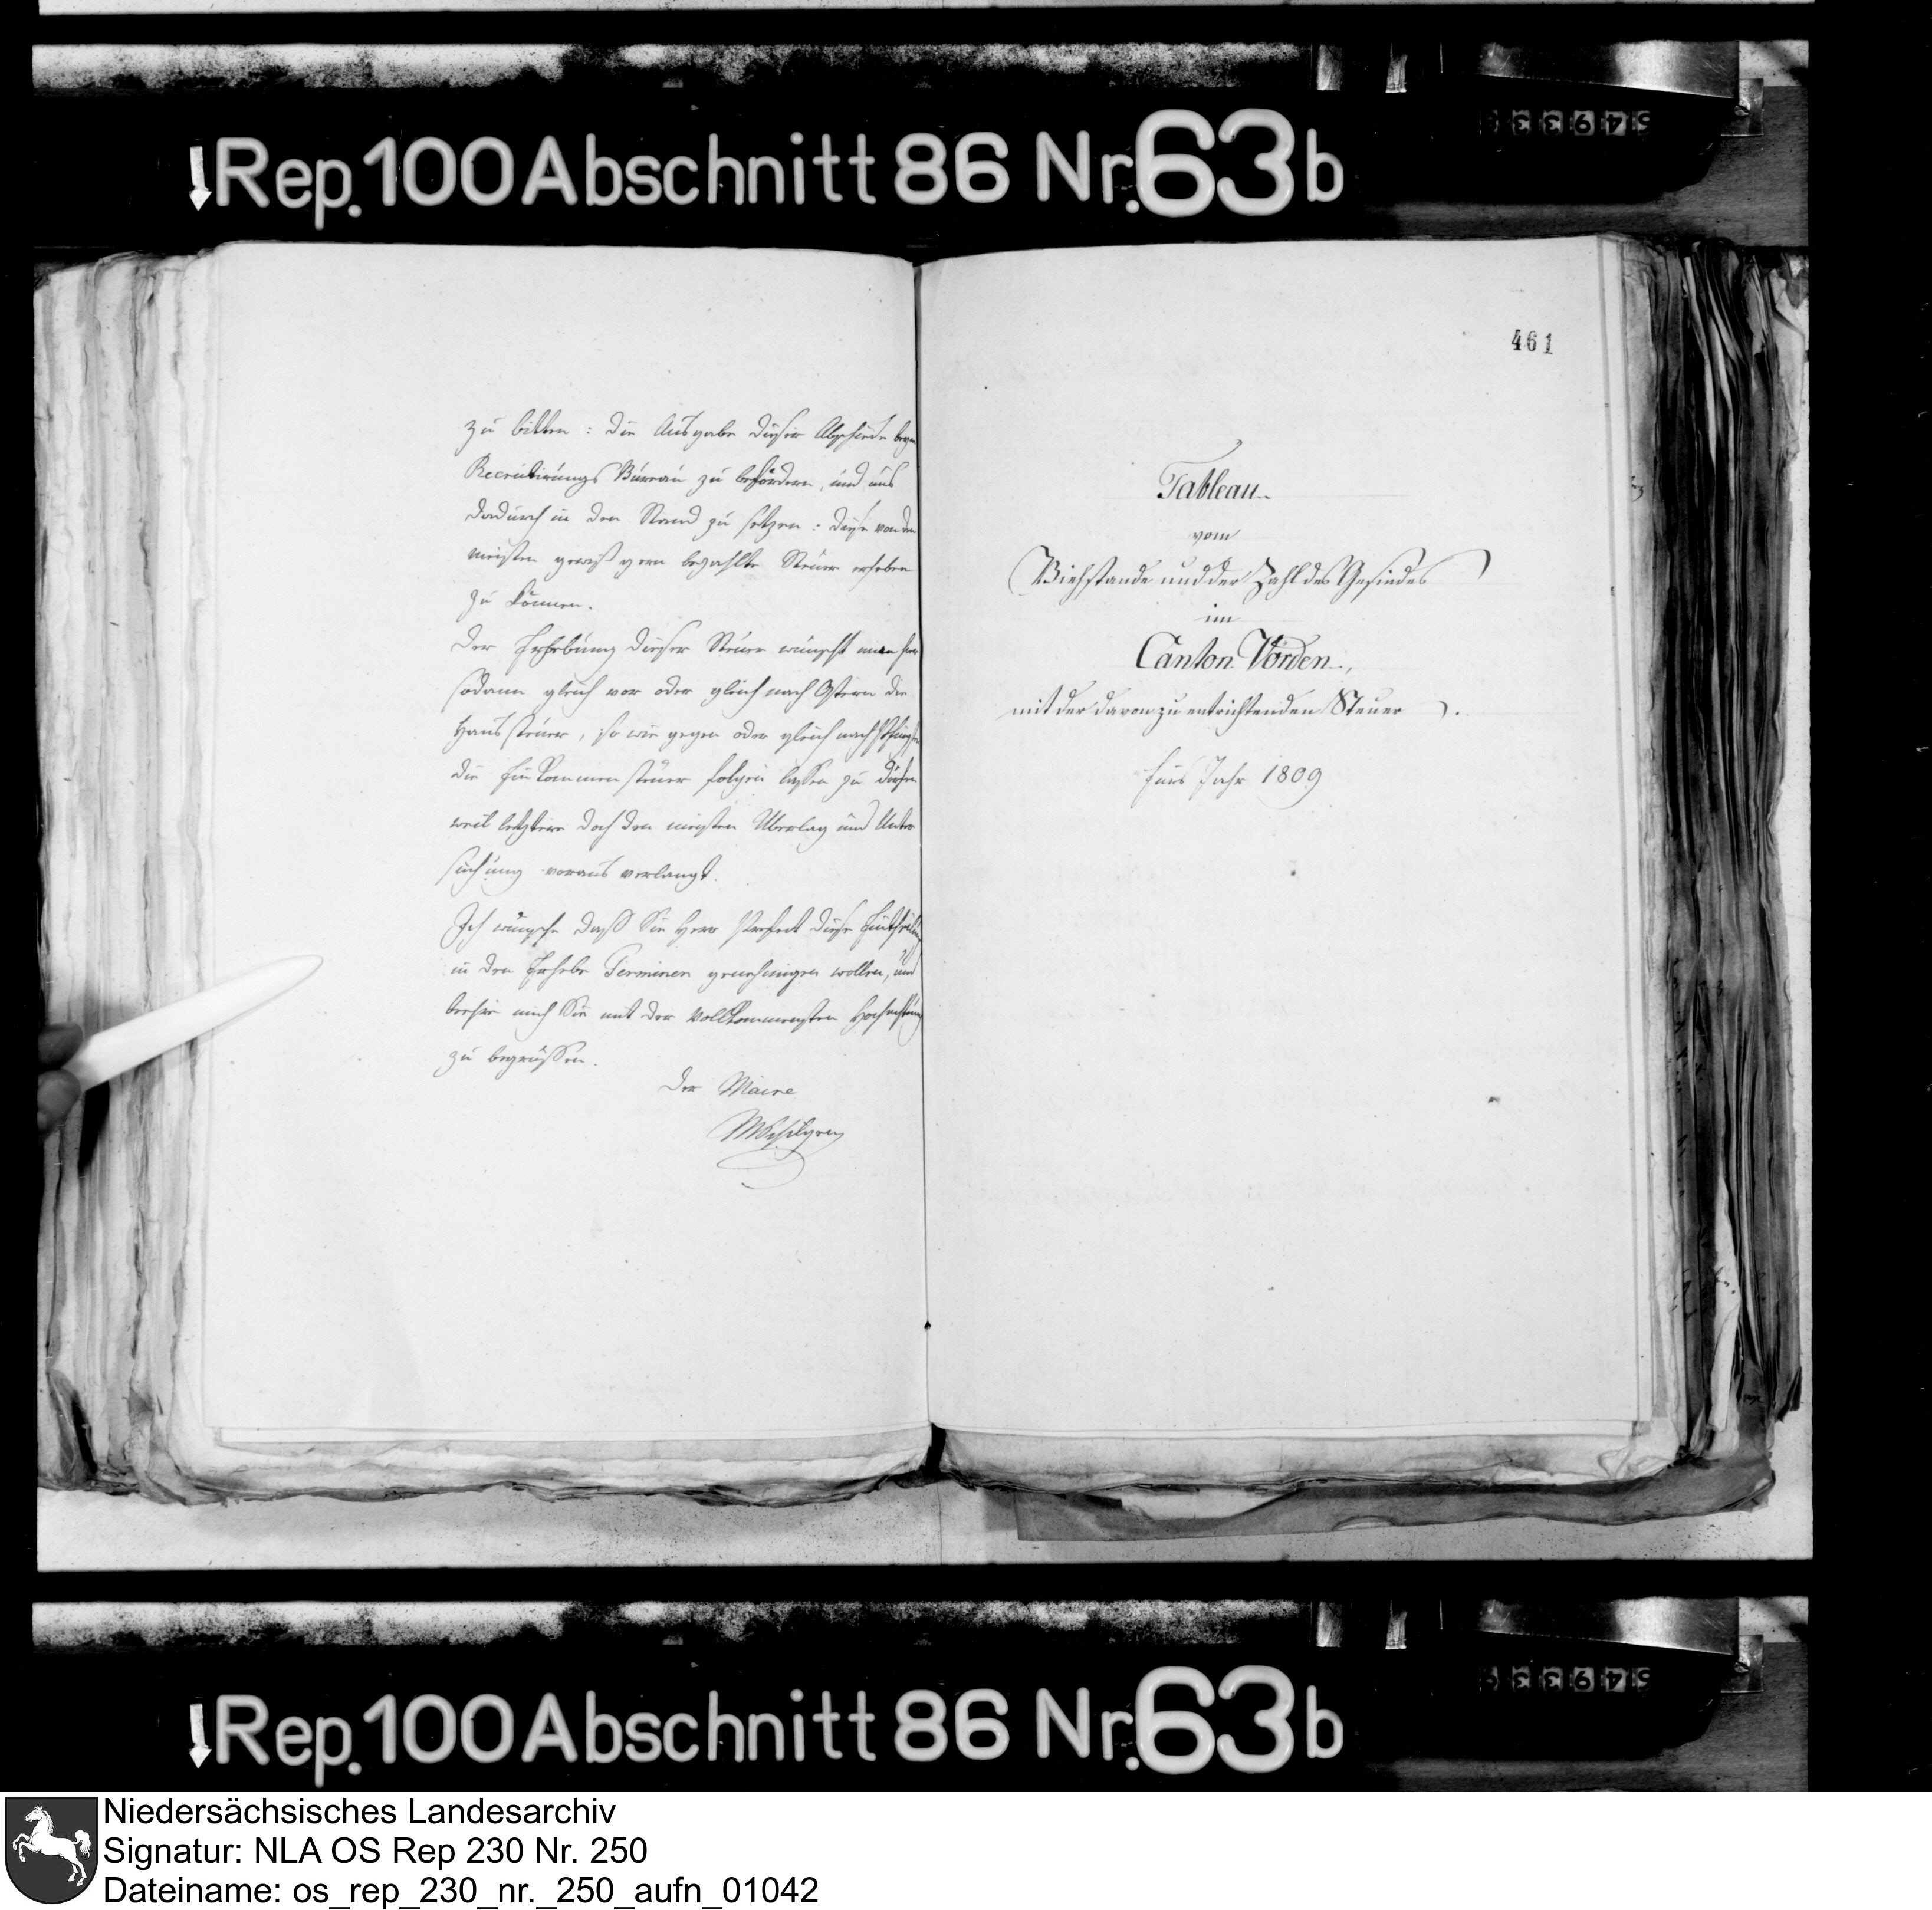 Rep. 100 Abschnitt 86 Nr. 63 b
zu bitten: die Ausgabe dieser Abschiede beym
Recrutirungs Büreau zu befördern, und uns
dadurch in den Stand zu setzen: diese von den
meisten gewiß gern bezahlte Steuer erheben
zu können.
Der Erhebung dieser Steuer wünscht man hier
sodann gleich vor oder gleich nach Ostern die
Haussteuer, so wie gegen oder gleich nach Pfingsten
die Einkommensteuer folgen lassen zu dürfen
weil letztere doch den meisten Überlag und Unter
suchung voraus verlangt.
Ich wünsche daß Sie Herr Prefect diese Eintheilung
in den Erhebe Terminen genehmigen wollen, und
beehre mich Sie mit der vollkommensten Hochachtung
zu begrüssen.
Der Maire
461
Tableau
vom
Viehstande und der Zahl des Gesindes
im
Canton Vörden,
mit der davon zu entrichtenden Steuer.
fürs Jahr 1809
Rep. 100 Abschnitt 86 Nr. 63 b
Niedersächsisches Landesarchiv
Signatur: NLA OS Rep 230 Nr. 250
Dateiname: os_rep_230_nr._250_aufn_01042